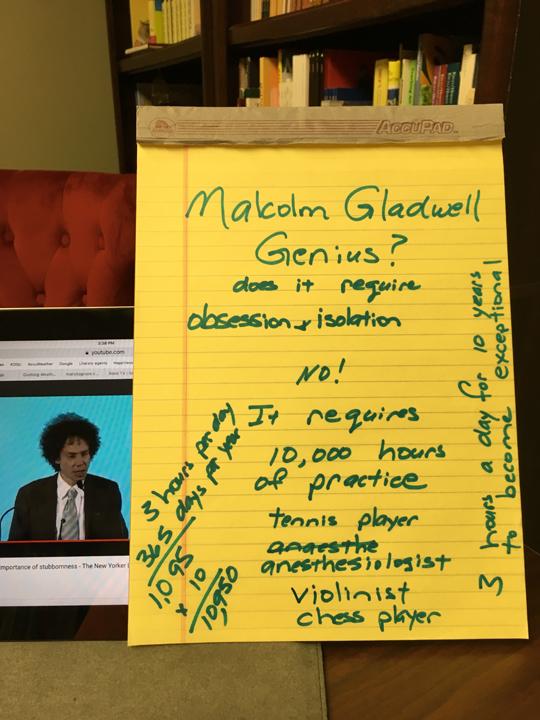 ACCUPAD
Malcolm Gladwell
Genius?
does it require
obsession + isolation
NO!
It requires
10,000 hours
of practice
tennis player
anaesthe
anesthesiologist
violinist
chess player
3 hours per day
365 days per year
1095
x 10
10,950
3 hours a day for 10 years
to become exceptional
3:38 PM
youtube.com
AccuWeather Google Literary agents
mportance of stubbornness - The New Yorker